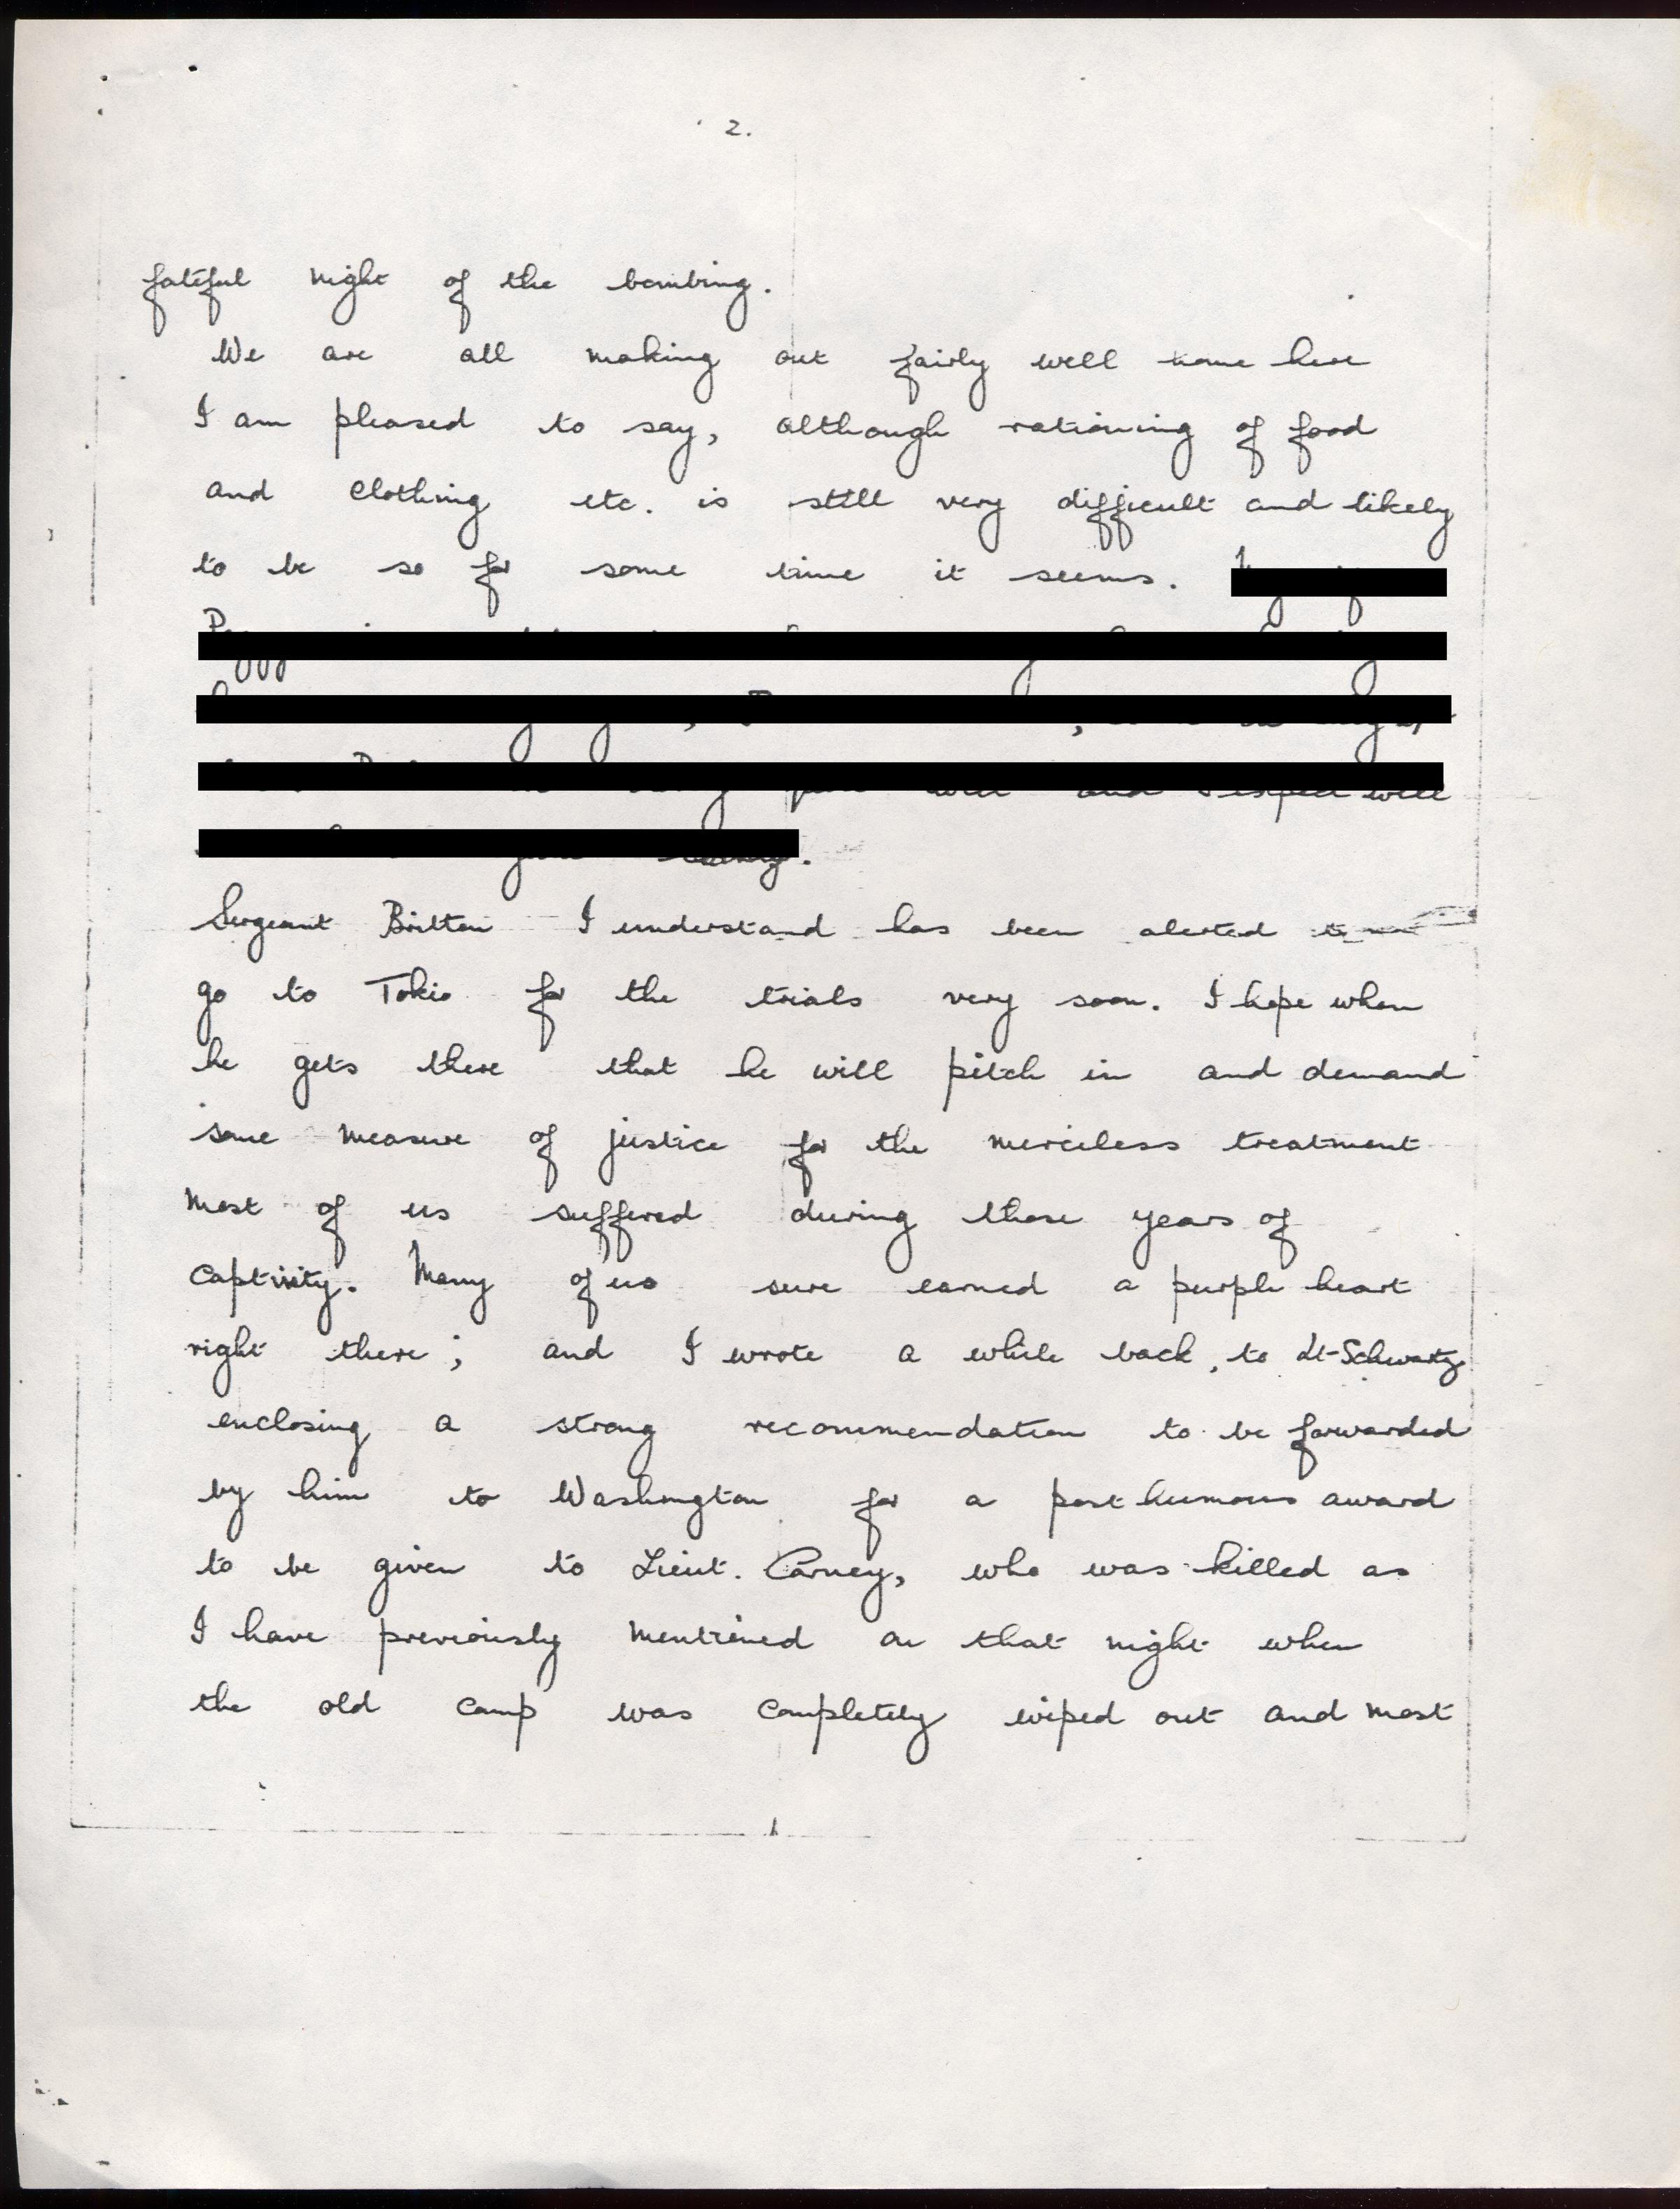 2.
fateful night of the bombing.
We are all making out fairly well home here
I am pleased to say, although rationing of food
and clothing etc. is still very difficult and likely
to be so for some time it seems.
and I expect will
Sergeant Britton I understand has been alerted to
go to Tokio for the trials very soon. I hope when
he gets there that he will pitch in and demand
some measure of justice for the merciless treatment
most of us suffered during those years of
captivity. Many of us sure earned a purple heart
right there; and I wrote a while back, to Lt-Schwartz
enclosing a strong recommendation to be forwarded
by him to Washington for a posthumous award
to be given to Lieut. Carney, who was killed as
I have previously mentioned on that night when
the old camp was completely wiped out and most